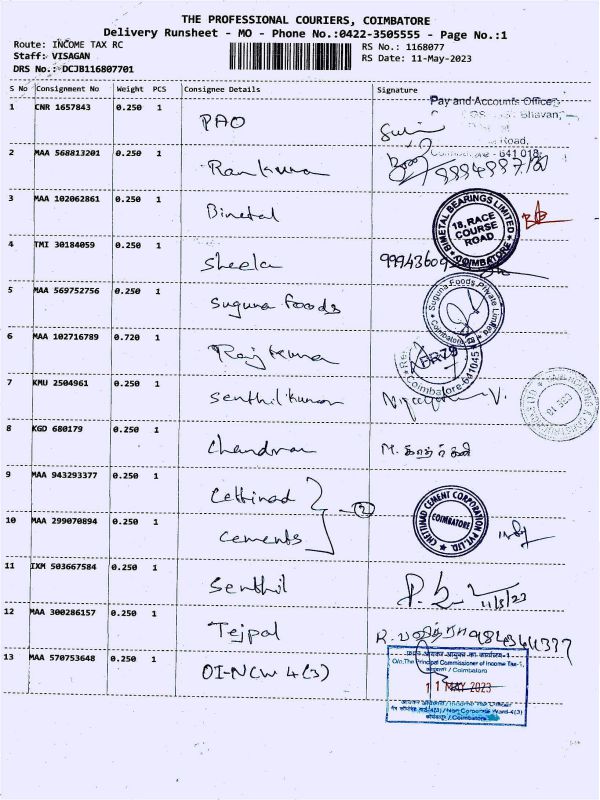 THE PROFESSIONAL COURIERS, COIMBATORE
Delivery Runsheet - MO - Phone No.:0422-3505555 - Page No.:1
Route: INCOME TAX RC
RS No.: 1168077
Staff: VISAGAN
RS Date: 11-May-2023
DRS No.: DCJB116807701
S No Consignment No Weight PCS Consignee Details Signature
1 CNR 1657843 0.250 1 PAO
Pay and Accounts Office
Bhavan,
Road,
641 018
2 MAA 568813201 0.250 1 Ramkumar
3 MAA 102062861 0.250 1 Bimetal
BIMETAL BEARINGS LIMITED
18, RACE
COURSE
ROAD
COIMBATORE
4 TMI 30184059 0.250 1 Sheela
5 MAA 569752756 0.250 1 Suguna foods
Suguna Foods Private Limited
Coimbatore
6 MAA 102716789 0.720 1 Rajkumar
Coimbatore-641045
7 KMU 2504961 0.250 1 Senthilkumar
8 KGD 680179 0.250 1 Chandran
9 MAA 943293377 0.250 1 Cettinad
(2)
10 MAA 299070894 0.250 1 Cements
CHETTINAD CEMENT CORPORATION PVT.LTD.
COIMBATORE
11 IXM 503667584 0.250 1 Senthil 11/5/23
12 MAA 300286157 0.250 1 Tejpal
13 MAA 570753648 0.250 1 OI-NCW 4(3)
O/o.The Principal Commissioner of Income Tax-1,
/ Coimbatore
11 MAY 2023
/ Non Corporate Ward-4(3)
/ Coimbatore